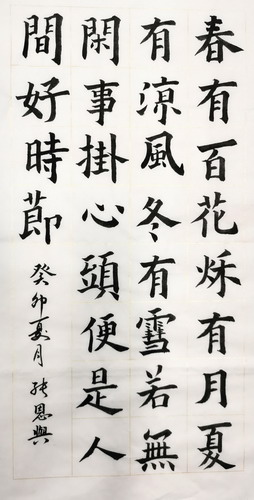 春有百花秌有月夏
有涼風冬有雪若無
閑事掛心頭便是人
間好時節
癸卯夏月張恩興